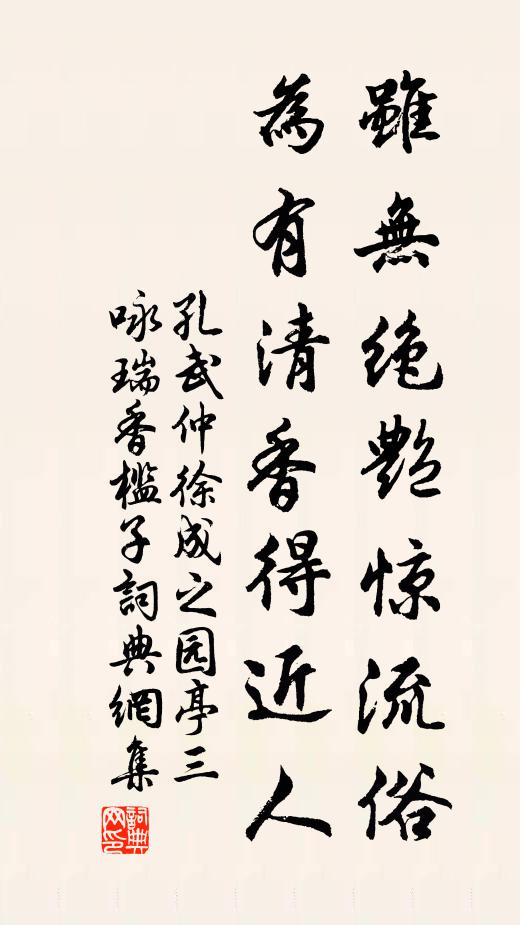 雖無絶艷惊流俗
為有清香得近人
孔武仲徐成之园亭三
咏瑞香槛子詞典網集
詞典網印